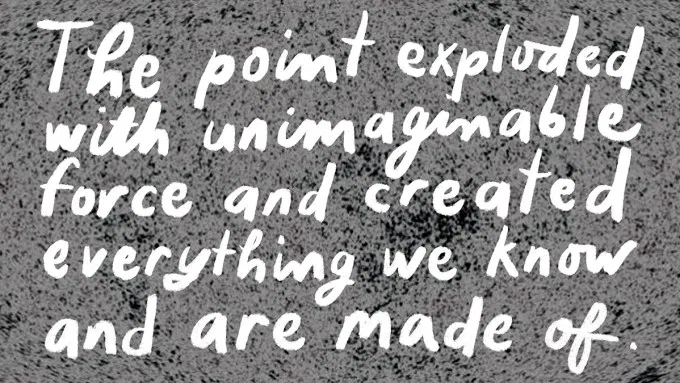 The point exploded
with unimaginable
force and created
everything we know
and are made of.